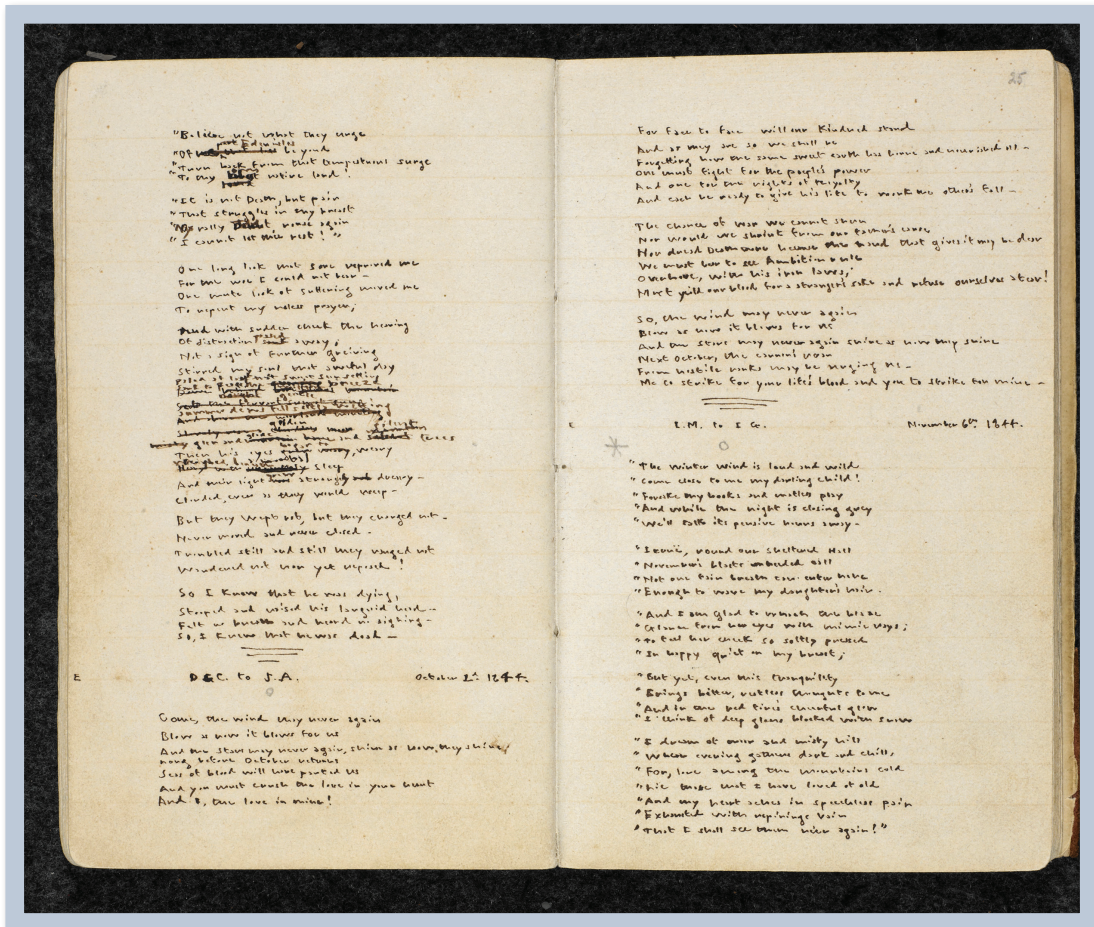 "Believe not what they urge
port Edenvales
"Of be yond
"Turn back from that tempestuous surge
"To thy native land!
"It is not Death, but pain
"That struggles in my breast
rally Dalmet, rouse again
"I cannot let thee rest!"
One long look that sore reproved me
For the woe I could not bear –
One mute look of suffering moved me
To repent my useless prayer;
And with sudden check the heaving
Of distraction passed away;
Not a sign of further grieving
Stirred my soul that awful day
Paled at last sweet sun setting
Sunk to peace the breeze
Summer dews fell softly wetting
golden
silent
glen and glade and trees
Then his eyes began to weary,
Sleep
And their light grew strangely dreary –
Clouded, even as they would weep –
But they wept not, but they changed not –
Never moved and never closed –
Troubled still and still they ranged not
Wandered not nor yet reposed!
So I knew that he was dying,
Stooped and raised his languid head –
Felt no breath and heard no sighing –
So, I knew that he was dead –
E
D.G.C. to J.A.
October 2d 1844.
Come, the wind may never again
Blow as now it blows for us
And the stars may never again, shine as now, they shine;
Long before October returns
Seas of blood will have parted us
And you must crush the love in your heart
And I, the love in mine!
25
For face to face will our Kindred stand
And as they are so we shall be
Forgetting how the same sweet earth has borne and nourished all –
One must fight for the people's power
And one for the rights of Royalty
And each be ready to give his life to work the other's fall –
The chance of war we cannot shun
Nor would we shrink from our fathers' cause
Nor dread Death more because the hand that gives it may be dear
We must bear to see Ambition rule
Over Love, with his iron laws;
Must yield our blood for a stranger's sake and refuse ourselves a tear!
So, the wind may never again
Blow as now it blows for us
And the stars may never again shine as now they shine
Next October, the cannon's roar
From hostile ranks may be urging us –
Me to strike for your life's blood and you to strike for mine –
E
E.M. to I G.
November 6th 1844.
"The winter wind is loud and wild
"Come close to me my darling child!
"Forsake thy books and mateless play
"And while the night is closing grey
"We'll talk its pensive hours away –
"Iernë, round our sheltered Hall
"November's blasts unheeded call
"Not one fain breath can enter here
"Enough to wave my daughter's hair –
"And I am glad to watch the blaze
"Glance from her eyes with mimic rays;
"To feel her cheek so softly pressed
"In happy quiet on my breast;
"But yet, even this tranquility
"Brings bitter, restless thoughts to me
"And in the red fire's cheerful glow
"I think of deep glens blocked with snow
"I dream of moor and misty hill
"Where evening gathers dark and chill,
"For, lone among the mountains cold
"Lie those that I have loved of old
"And my heart aches in speechless pain
"Exhausted with repinings vain
"That I shall see them ne'er again!"